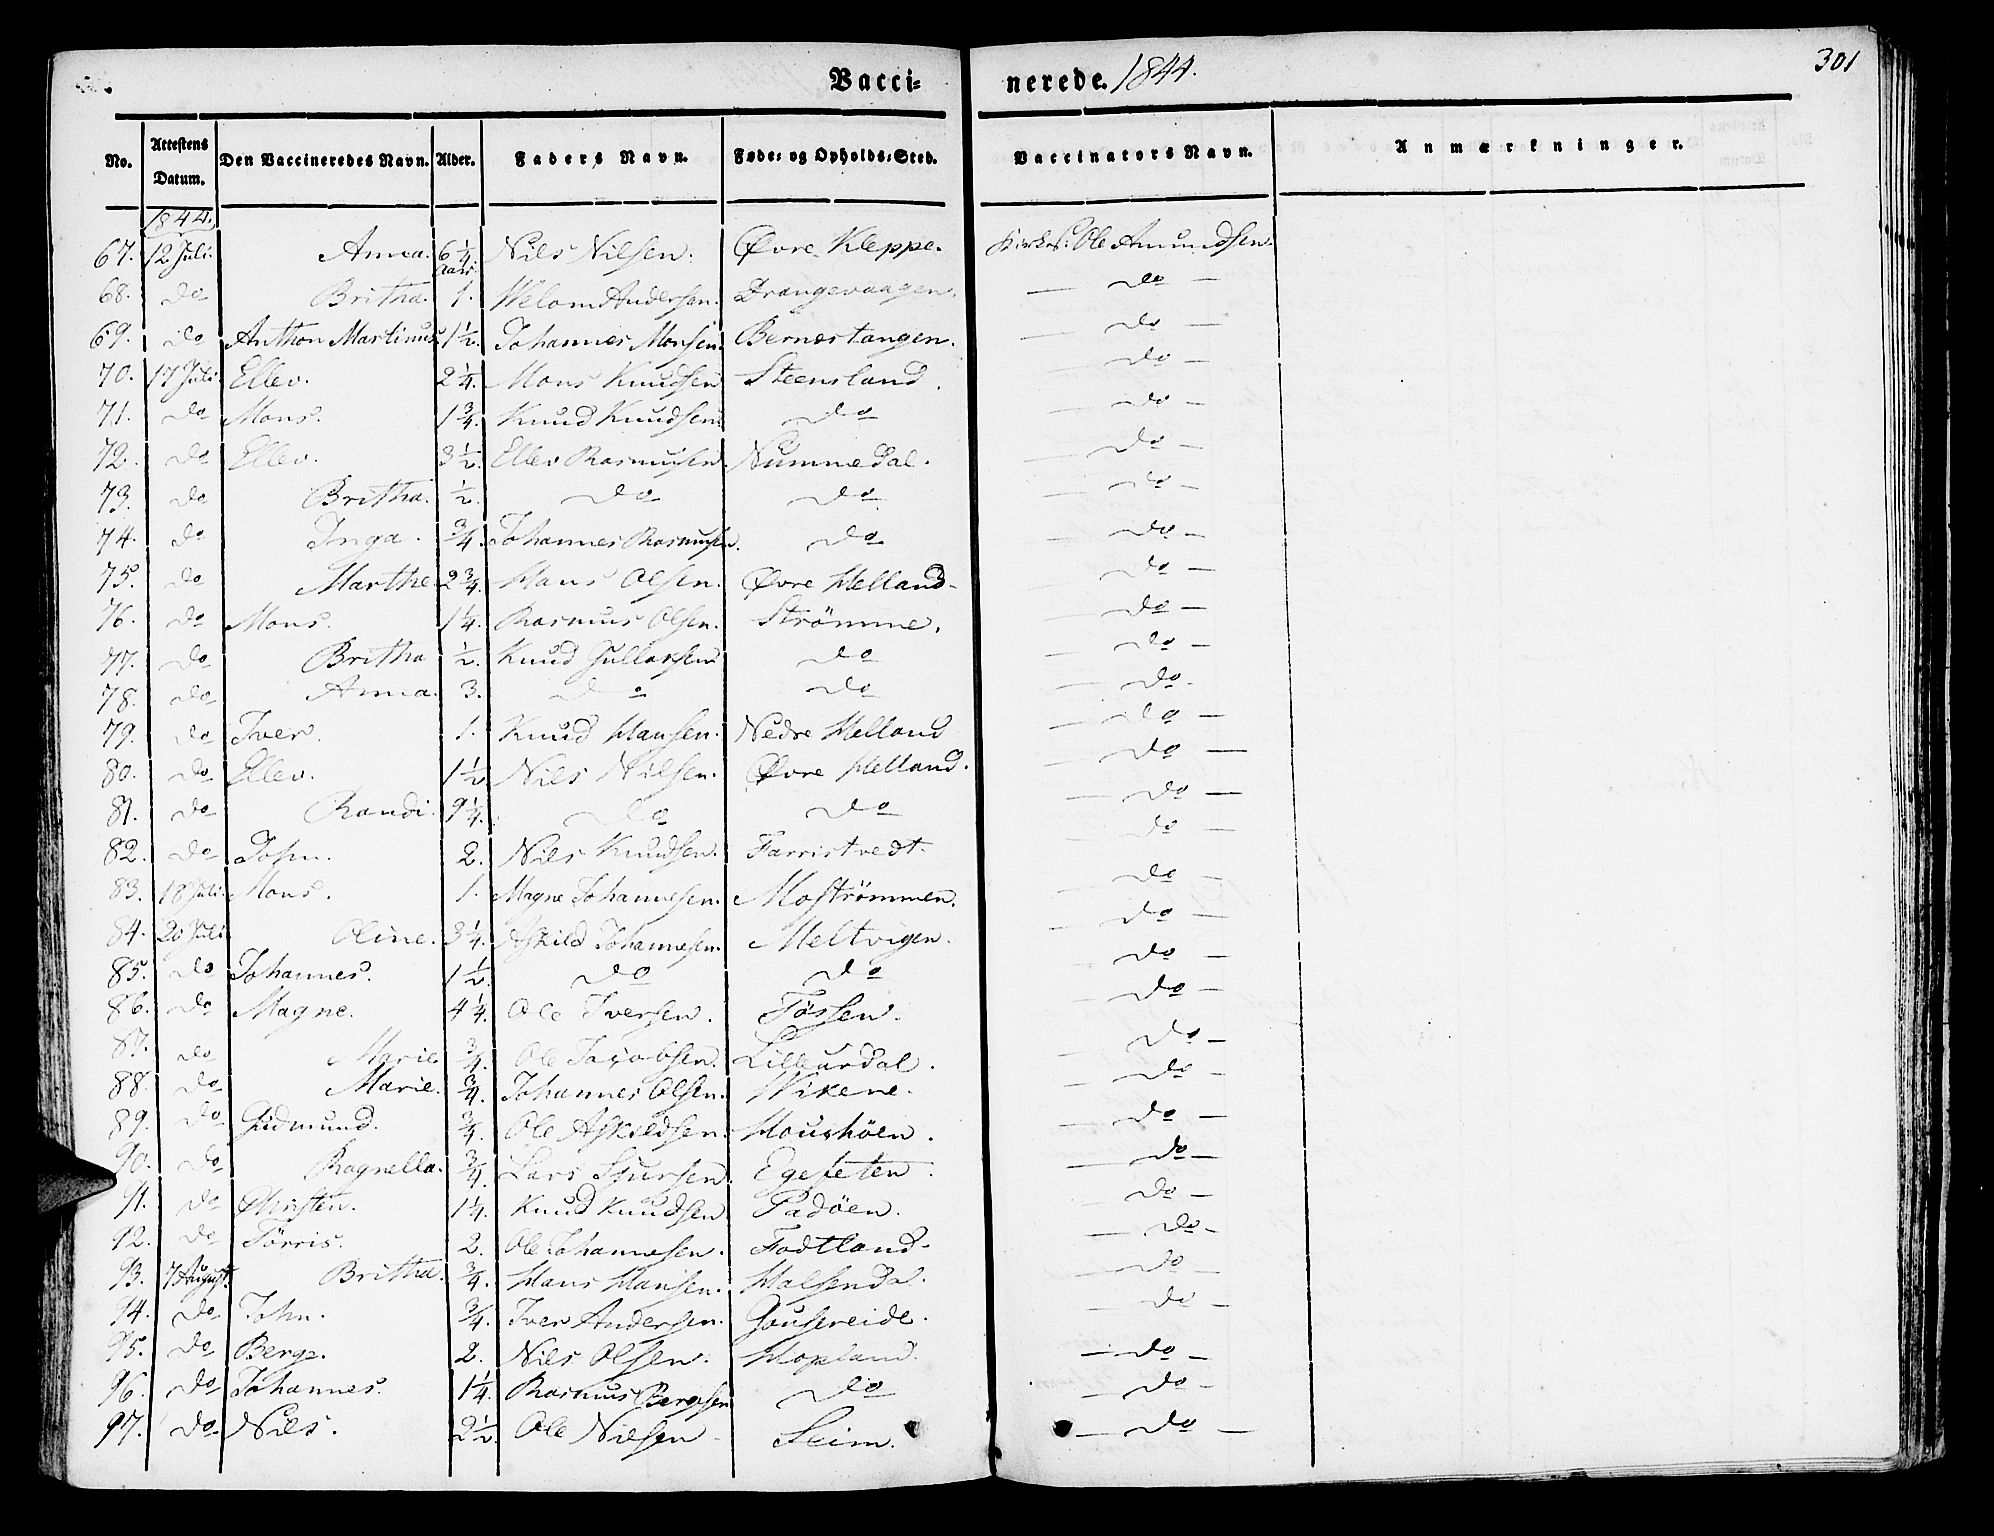 Vacci= nerede. 1844. 301
No. Attestens Datum. Den Vaccineredes Navn. Alder. Faders Navn. Føde= og Opholds=Sted. Vaccinators Navn. Anmærkninger.
1844.
67. 12 Juli. Anna. 6 1/4 Aar. Nils Nilsen. Øvre Kleppe. Kirkes: Ole Amundsen.
68. do Britha. 1. Welom Andersen. Drangevaagen. — do —
69. do Anthon Martinus. 1 1/2. Johannes Monsen. Bernestangen. — do —
70. 17 Juli. Ellev. 2 1/4. Mons Knudsen Steensland. — do —
71. do Mons. 1 3/4. Knud Knudsen. do — do —
72. do Ellev. 3 1/2. Ellev Rasmusen. Nummedal. — do —
73. do Britha. 1/2. do do — do —
74. do Inga. 3/4. Johannes Rasmusen. do — do —
75. do Marthe. 2 3/4. Hans Olsen. Øvre Helland. — do —
76. do Mons. 1 1/4. Rasmus Olsen. Strömme. — do —
77. do Britha 1/2. Knud Gullaksen do — do —
78. do Anna. 3. do do — do —
79. do Iver. 1. Knud Hansen. Nedre Helland — do —
80. do Ellev. 1 1/2 Nils Nilsen. Øvre Helland. — do —
81. do Randi. 9 1/4. do do — do —
82. do John. 2. Nils Knudsen. Farristvedt. — do —
83. 18 Juli. Mons. 1. Magne Johannesen. Moströmmen. — do —
84. 20 Juli. Oline. 3 1/4. Askild Johannesen. Meltvigen. — do —
85. do Johannes. 1 1/2. do do — do —
86. do Magne. 4 1/4. Ole Iversen. Fossen. — do —
87. do Marie 3/4. Ole Jacobsen. Lilleurdal. — do —
88. do Marie. 3/4. Johannes Olsen. Wikene. — do —
89. do Gudmund. 3/4. Ole Askildsen. Houshöen. — do —
90. do Ragnella. 3/4. Lars Sjursen. Egeseten. — do —
91. do Christen. 1 1/4. Knud Knudsen. Padöen. — do —
92. do Törris. 2. Ole Johannesen. Fodtland. — do —
93. 7 August. Britha. 3/4. Hans Hansen. Halsendal. — do —
94. do John. 3/4. Iver Andersen. Gousereide. — do —
95. do Berge. 2. Nils Olsen. Hopland. — do —
96. do Johannes. 1 1/4. Rasmus Bergesen do — do —
97. do Nils. 2 1/2. Ole Nilsen Seim. — do —